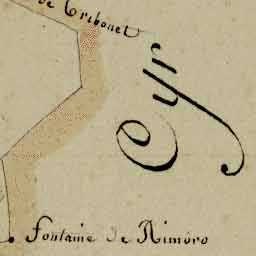 de Tribouet
Cyr
fontaine de Rimoro